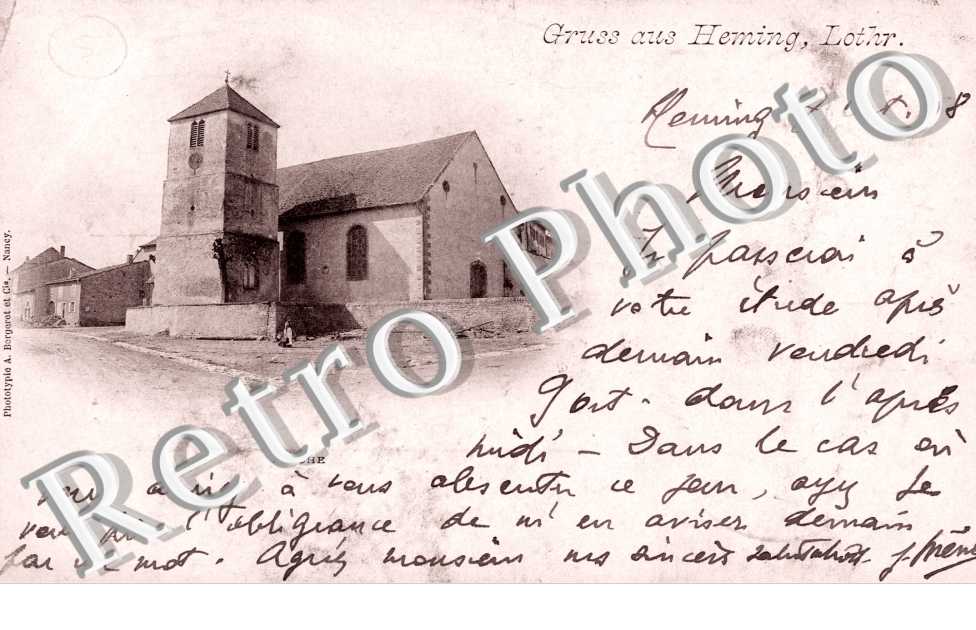 Gruss aus Heming, Lothr.
Heming
Monsieur
Je passerai à
votre étude après
demain vendredi
9 oct. dans l'après
midi – Dans le cas où
vous à vous absenter ce jour, ayez
l'obligeance de m'en aviser demain
par un mot. Agréez monsieur mes sincères salutations.
Phototypie A. Bergeret et Cie. — Nancy.
Retro Photo